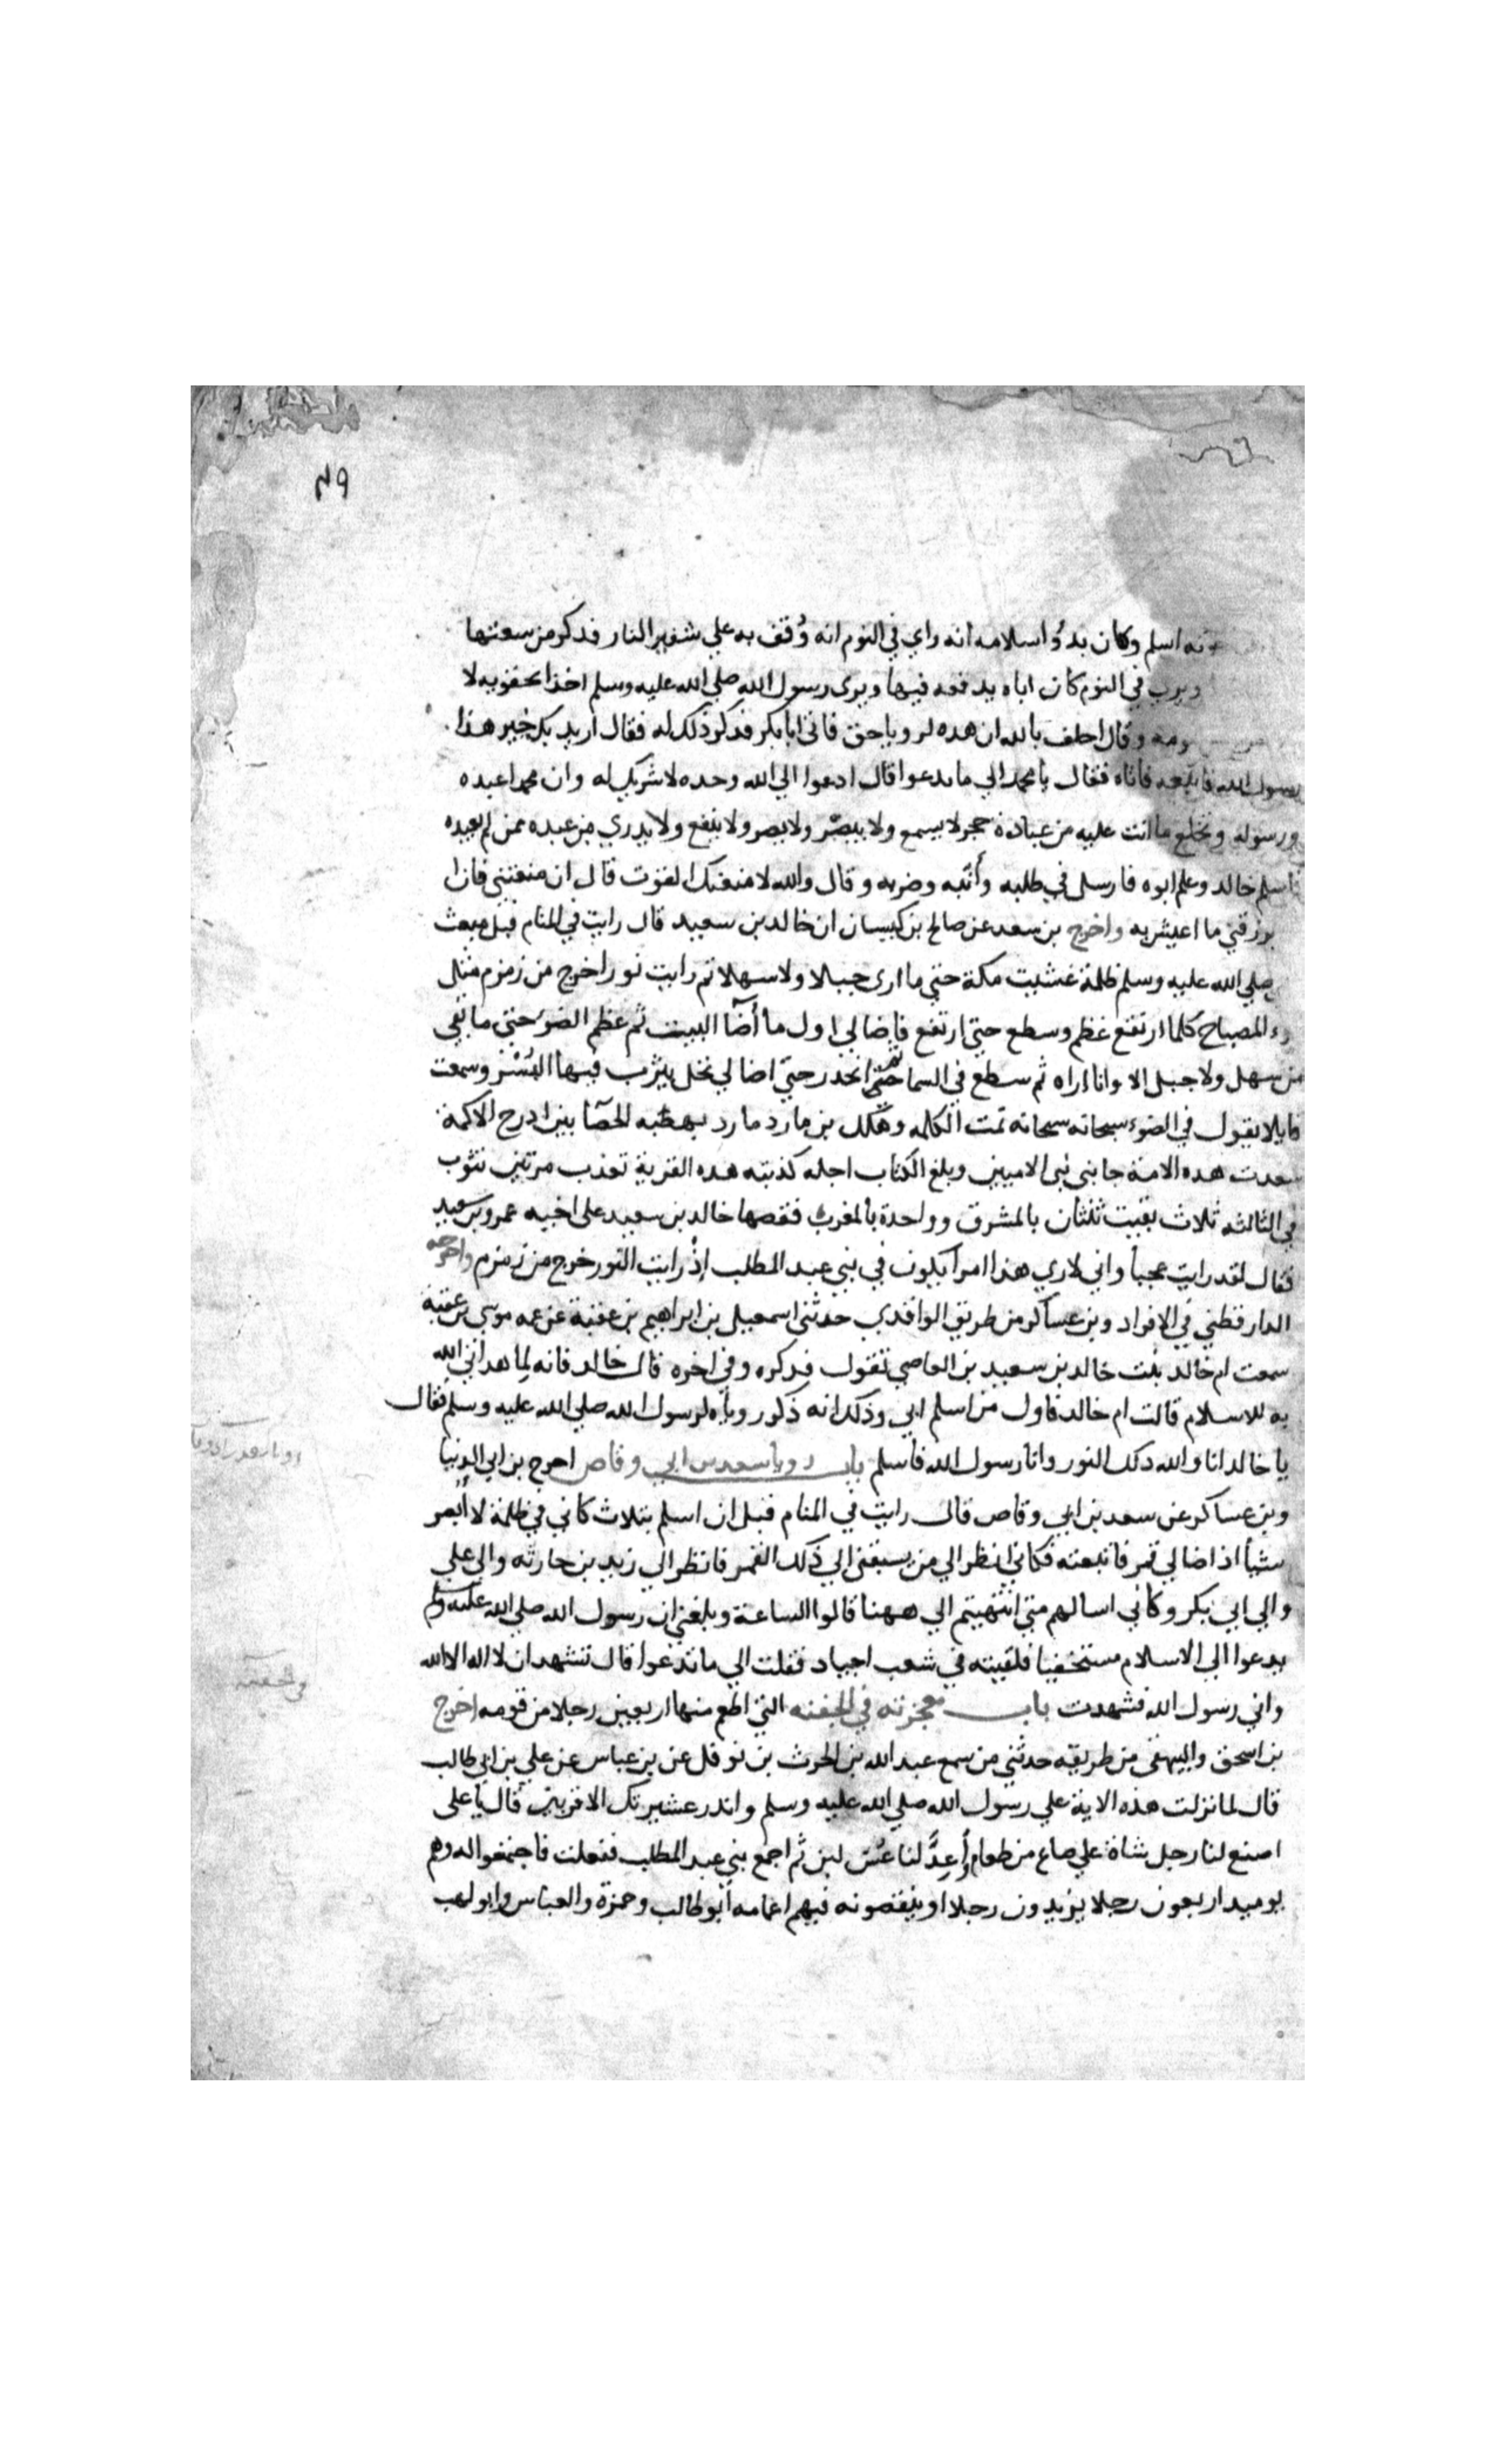 ٤٩
اسلم وكان بدؤ اسلامه انه راي في النوم انه وُقف به علي شفير النار فدكر من سعتها
ويرب في النوم كان اباه يدفعه فيها ويرى رسول الله صلي الله عليه وسلم اخذا بحقويه لا
وقال احلف بالله ان هده لرويا حق فاتى ابا بكر فدكر ذلك له فقال اريد بك خير هذا
رسول الله فاتبعه فاتاه فقال يا محمد الي ما تدعوا قال ادعوا الي الله وحده لا شريك له وان محمدا عبده
ورسوله وتخلع ما انت عليه من عبادة حجر لا يسمع ولا يبصر ولا يضر ولا ينفع ولا يدري من عبده ممن لم يعبده
فاسلم خالد وعلم ابوه فارسل في طلبه وأنّبه وضربه وقال والله لا منعنك القوت قال ان منعتني فان ا
يرزقني ما اعيش به واخرج بن سعد عن صالح بن كيسان ان خالد بن سعيد قال رايت في المنام قبل مبعث
صلي الله عليه وسلم ظلمة غشيت مكة حتي ما ارى جبلا ولا سهلا ثم رايت نورا خرج من زمزم مثل
المصباح كلما ارتفع عظم وسطع حتي ارتفع فاضا لي اول ما أضا البيت ثم عظم الضوء حتي ما بقي
من سهل ولا جبل الا وانا اراه ثم سطع في السما ثم انحدر حتي اضا لي نخل يثرب فيها البُسْر وسمعت
قايلا يقول في الضوء سبحانه سبحانه تمت الكلمه وهلك بن مارد مارد بهضبه الحصا بين ادرح الاكمة
سعدت هده الامة جا نبي الاميين وبلغ الكتاب اجله كذبته هده القرية تعذب مرتين تتوب
في الثالثه ثلاث بقيت ثنتان بالمشرق وواحدة بالمغرب فقصها خالد بن سعيد على اخيه عمرو بن سعيد
فقال لقد رايت عجبا واني لاري هذا امرا يكون في بني عبد المطلب إذ رايت النور خرج من زمزم واخرجه
الدارقطني في الافراد وبن عساكر من طريق الواقدي حدثني اسمعيل بن ابراهيم بن عقبة عن عمه موسي بن عقبة
سمعت ام خالد بنت خالد بن سعيد بن العاصي تقول فدكره وفي اخره قال خالد فانه لما هداني الله
به للاسلام قالت ام خالد فاول من اسلم ابي وذلك انه ذكر روياه لرسول الله صلي الله عليه وسلم فقال
يا خالد انا والله دلك النور وانا رسول الله فاسلم باب رويا سعد بن ابي وقاص اخرج بن ابي الدنيا
وبن عساكر عن سعد بن ابي وقاص قال رايت في المنام قبل ان اسلم بثلاث كاني في ظلمة لا أُبصر
شيأ اذ اضا لي قمر فاتبعته فكاني انظر الي من يسبقني الي ذلك القمر فانظر الي زيد بن حارثه والي علي
والي ابي بكر وكاني اسالهم متي انتهيتم الي ههنا قالوا الساعة وبلغني ان رسول الله صلي الله عليه وسلم
يدعوا الي الاسلام مستخفيا فلقيته في شعب اجياد فقلت الي ما تدعوا قال تشهد ان لا اله الا الله
واني رسول الله فشهدت باب معجزته في الجفنه التي اطعم منها اربعين رجلا من قومه اخرج
بن اسحق والبيهقي من طريقه حدثني من سمع عبد الله بن الحرث بن نوفل عن بن عباس عن علي بن ابي طالب
قال لما نزلت هذه الاية علي رسول الله صلي الله عليه وسلم وانذر عشيرتك الاقربين قال يا على
اصنع لنا رجل شاة علي صاع من طعام وأَعِدَّ لنا عُسّ لبن ثم اجمع بني عبد المطلب ففعلت فاجتمعوا له وهم
يوميد اربعون رجلا يزيدون رجلا او ينقصونه فيهم اعمامه ابو طالب وحمزة والعباس وابو لهب